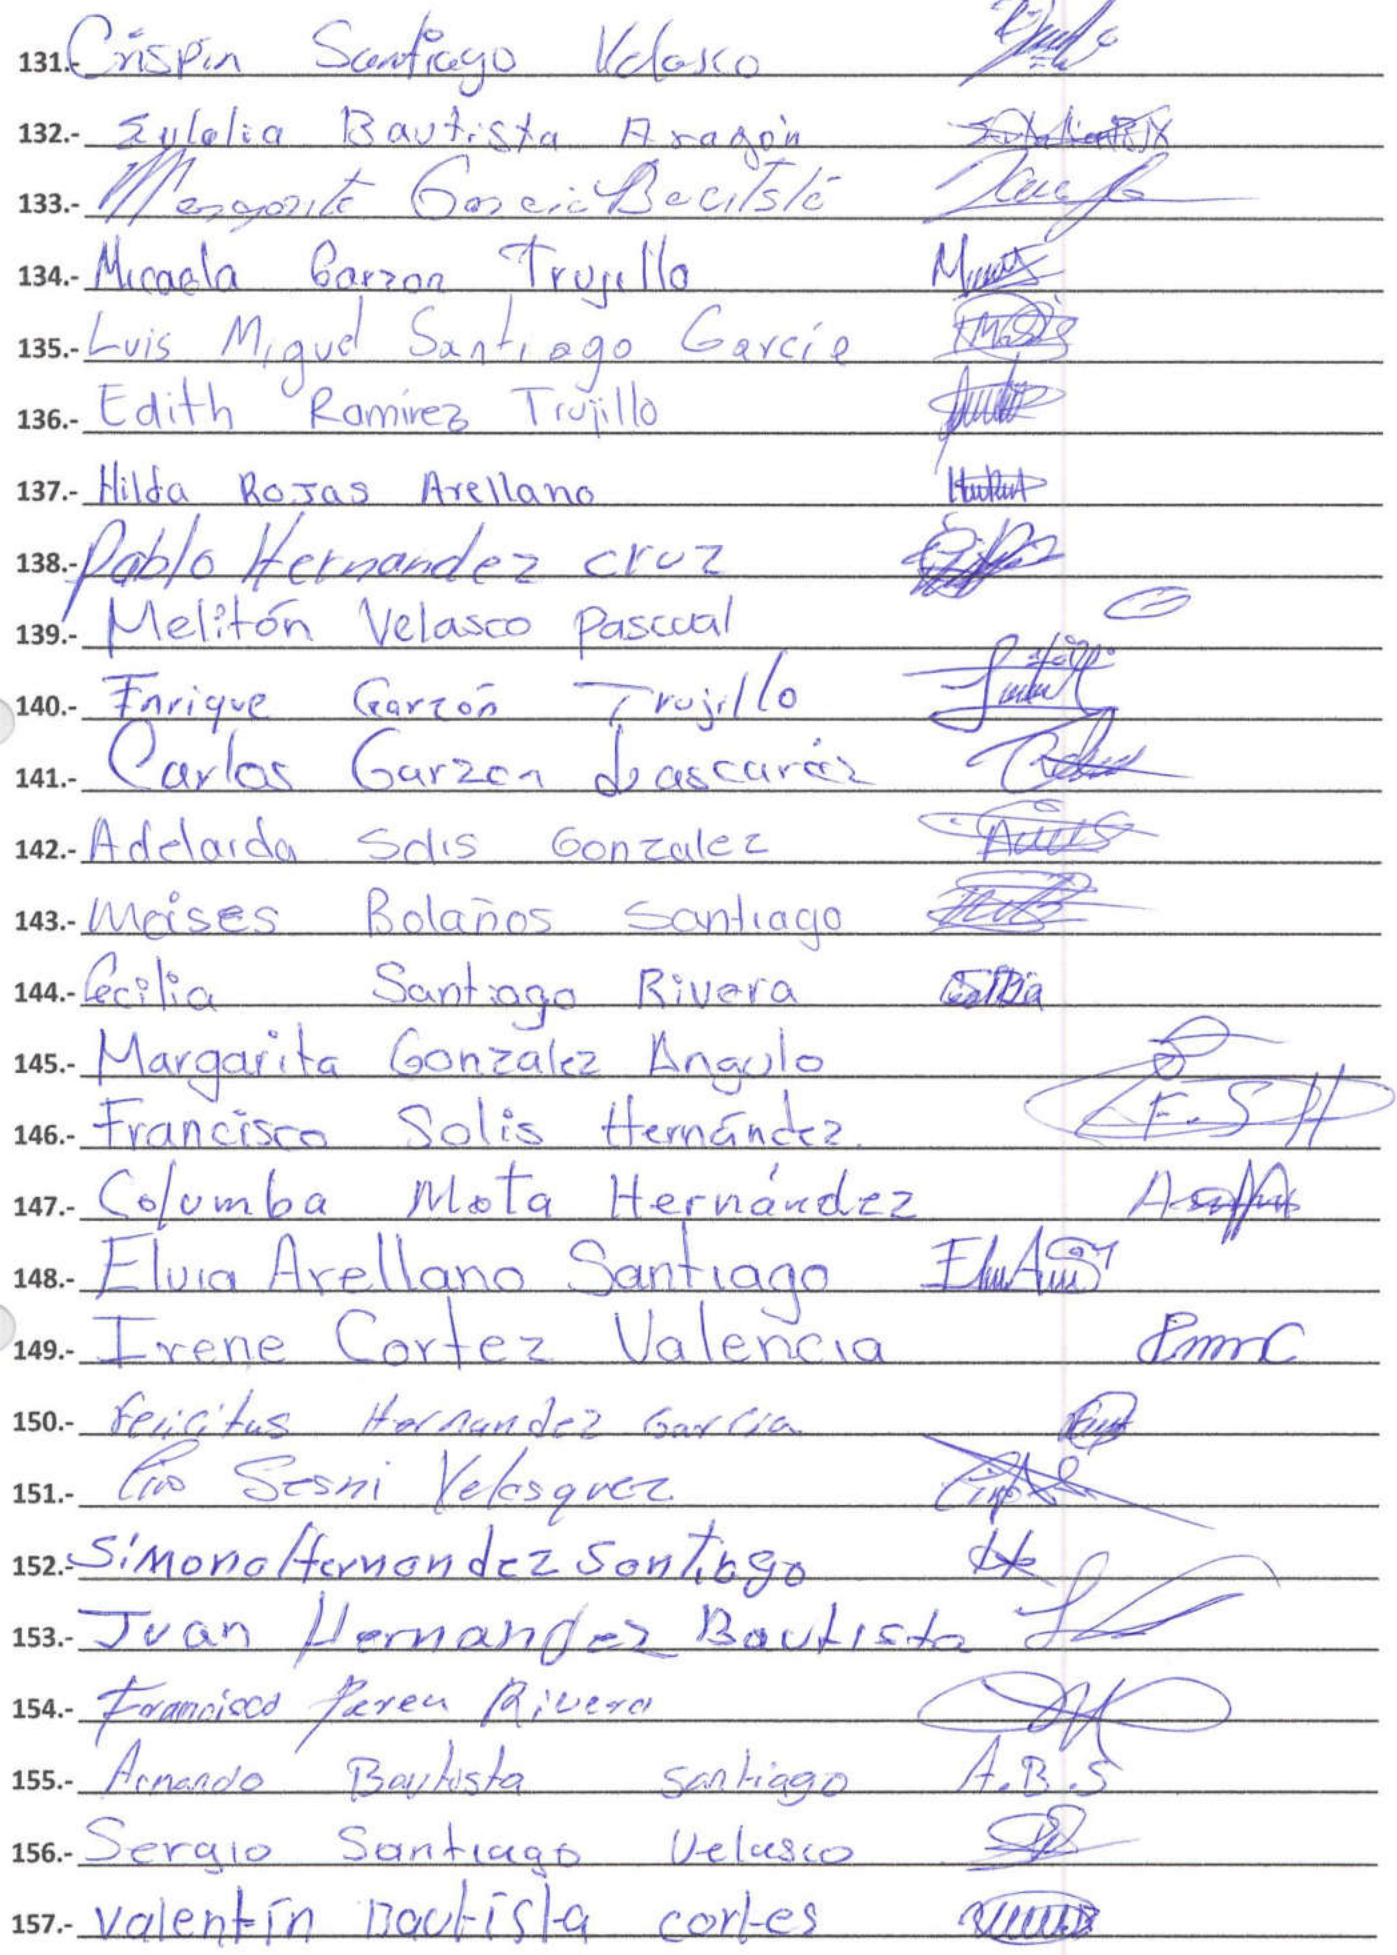 131.- Crispin Santiago Velasco
132.- Eulalia Bautista Aragón
133.- Margarita Garcia Bautista
134.- Micaela Garzon Trujillo
135.- Luis Miguel Santiago García
136.- Edith Ramírez Trujillo
137.- Hilda Rojas Arellano
138.- Pablo Hernandez cruz
139.- Melitón Velasco Pascual
140.- Enrique Garzón Trujillo
141.- Carlos Garzon Lascaréz
142.- Adelaida Solis Gonzalez
143.- Moises Bolaños Santiago
144.- Cecilia Santiago Rivera
145.- Margarita Gonzalez Angulo
146.- Francisco Solis Hernández. F.S H
147.- Columba Mota Hernández
148.- Elvia Arellano Santiago
149.- Irene Cortez Valencia
150.- Felicitas Hernandez Garcia
151.- Velasquez
152.- Simona Hernandez Santiago
153.- Juan Hernandez Bautista
154.- Francisco Rivera
155.- Armando Bautista Santiago A.B.S
156.- Sergio Santiago Velasco
157.- valentín Bautista cortes